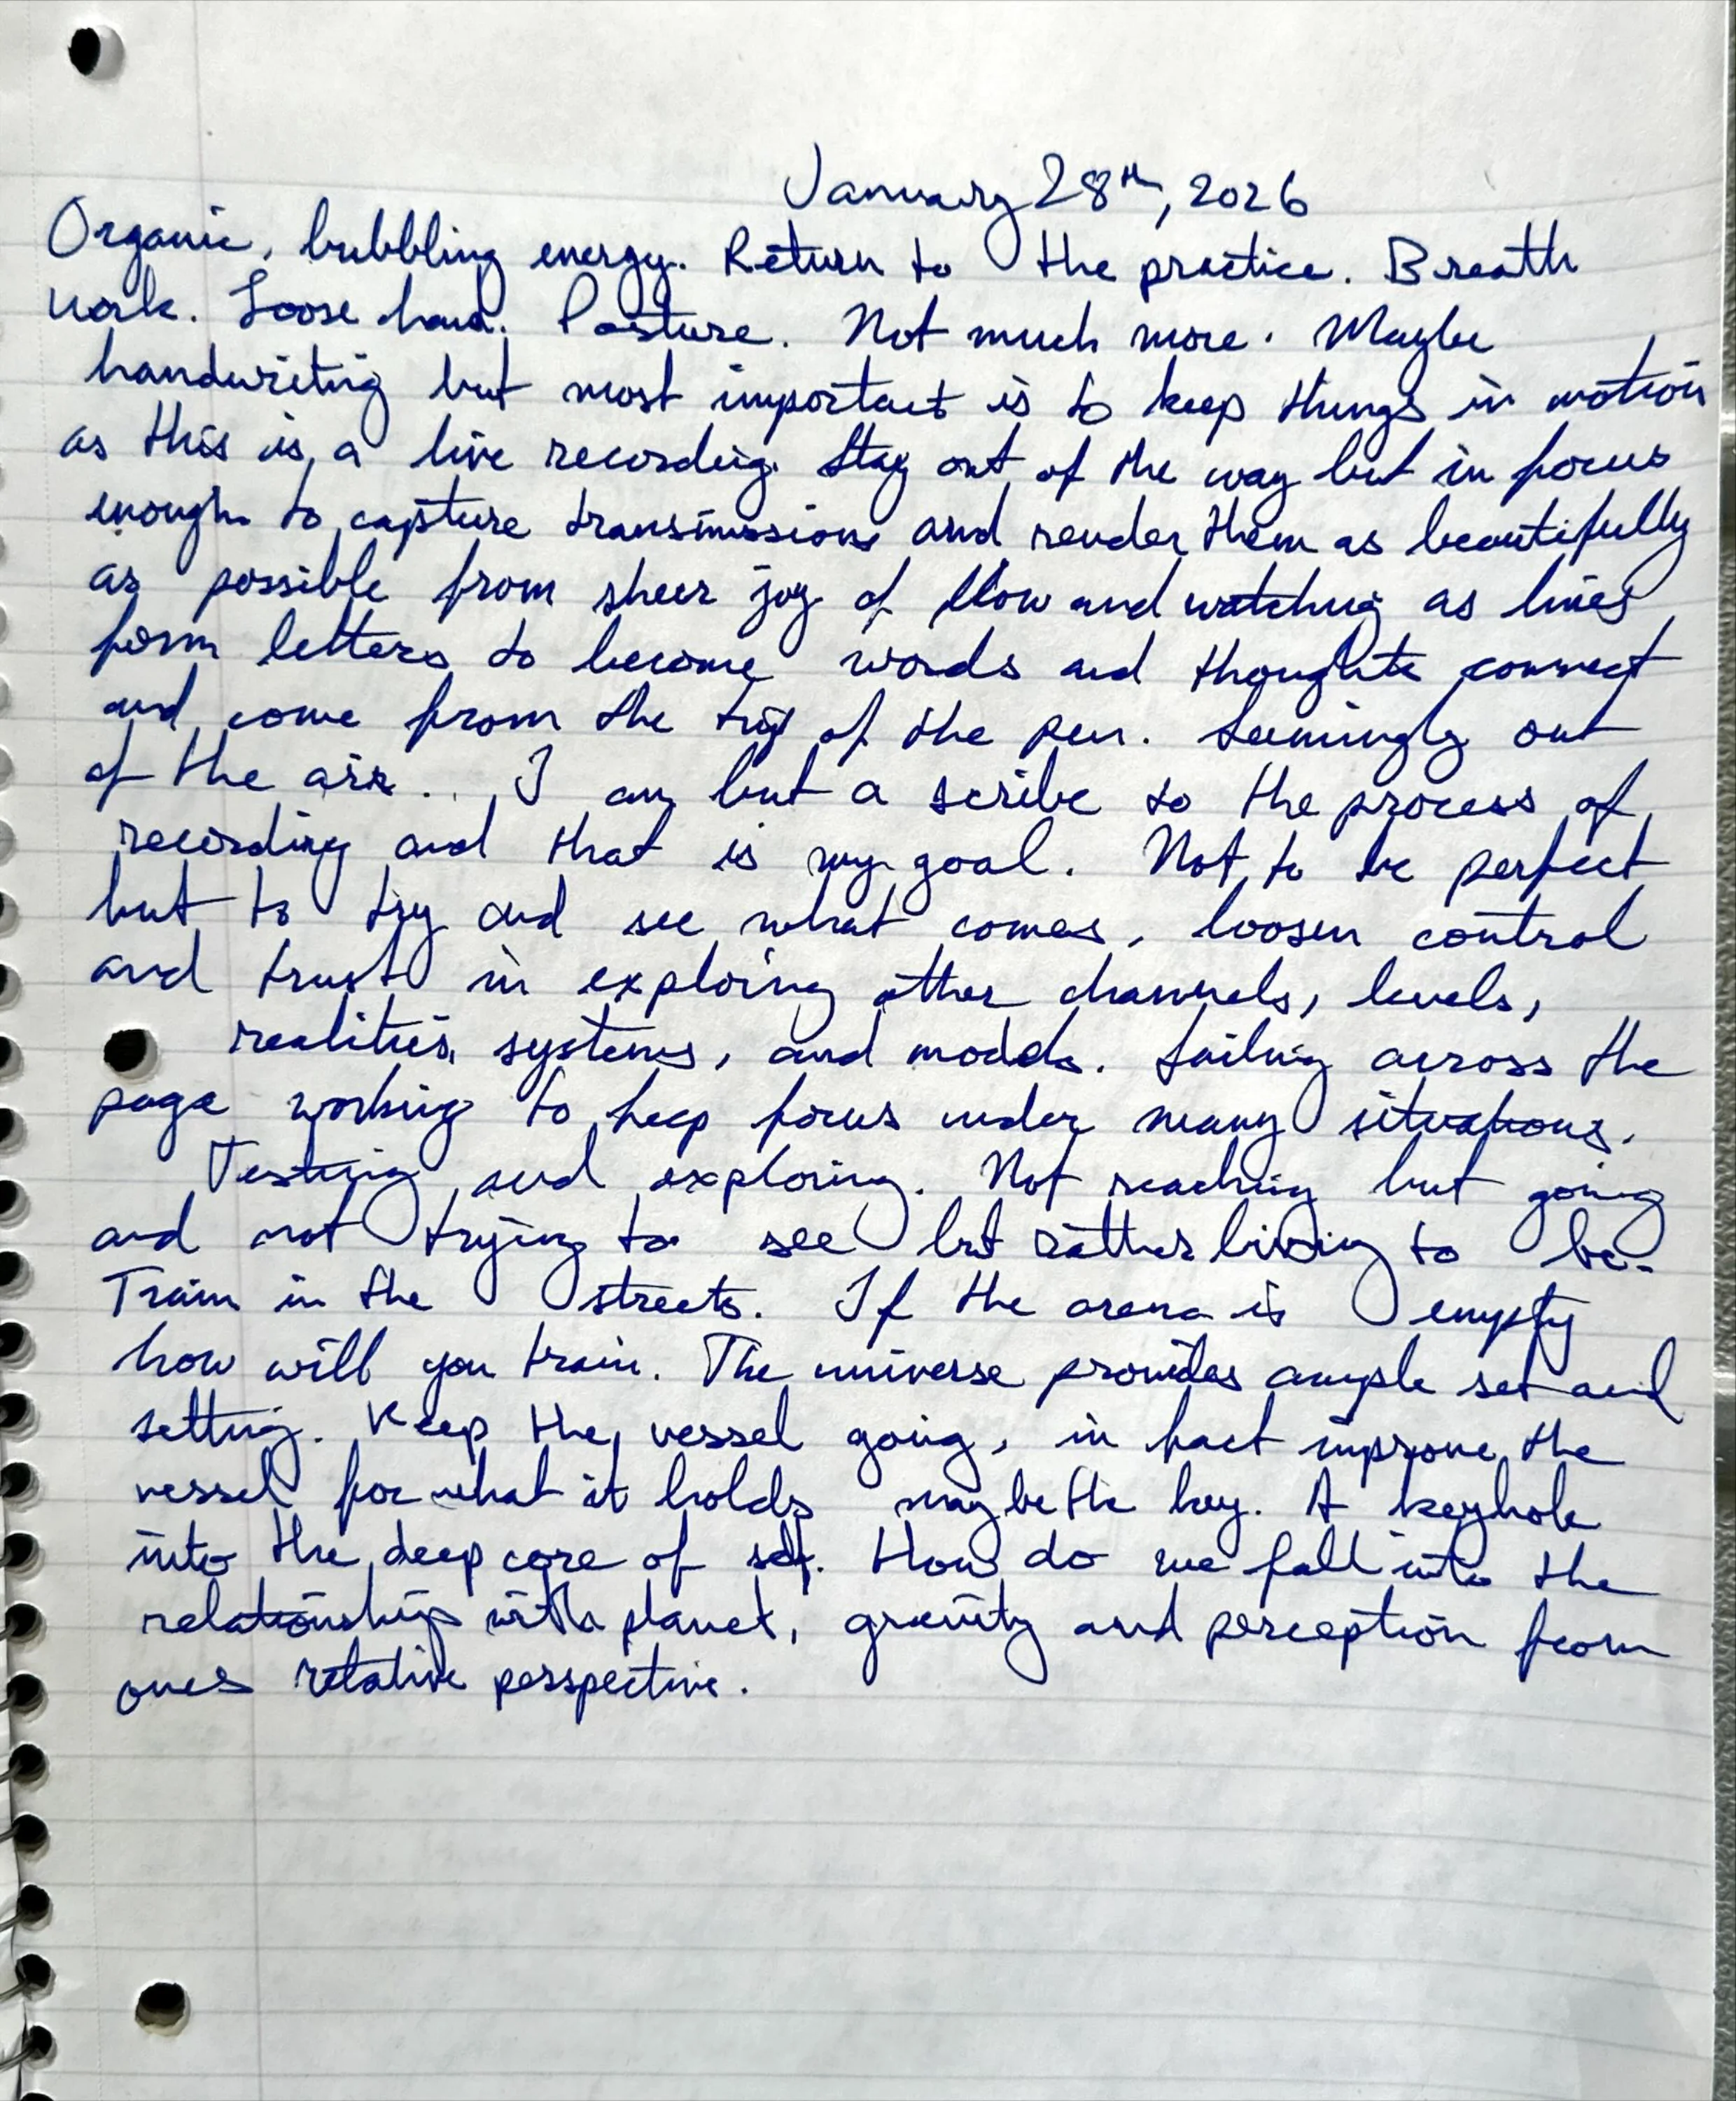 January 28th, 2026
Organic, bubbling energy. Return to the practice. Breath
work. Loose hand. Posture. Not much more. Maybe
handwriting but most important is to keep things in motion
as this is a live recording. Stay out of the way but in focus
enough to capture transmissions and render them as beautifully
as possible from sheer joy of flow and watching as lines
form letters to become words and thoughts connect
and come from the tip of the pen. Seemingly out
of the air... I am but a scribe to the process of
recording and that is my goal. Not to be perfect
but to try and see what comes, loosen control
and trust in exploring other channels, levels,
realities, systems, and models. Sailing across the
page working to keep focus under many situations.
Testing and exploring. Not reaching but going
and not trying to see but rather living to be.
Train in the streets. If the arena is empty
how will you train. The universe provides ample set and
setting. Keep the vessel going, in fact improve the
vessel for what it holds may be the key. A keyhole
into the deep core of self. How do we fall into the
relationship with planet, gravity and perception from
ones relative perspective.